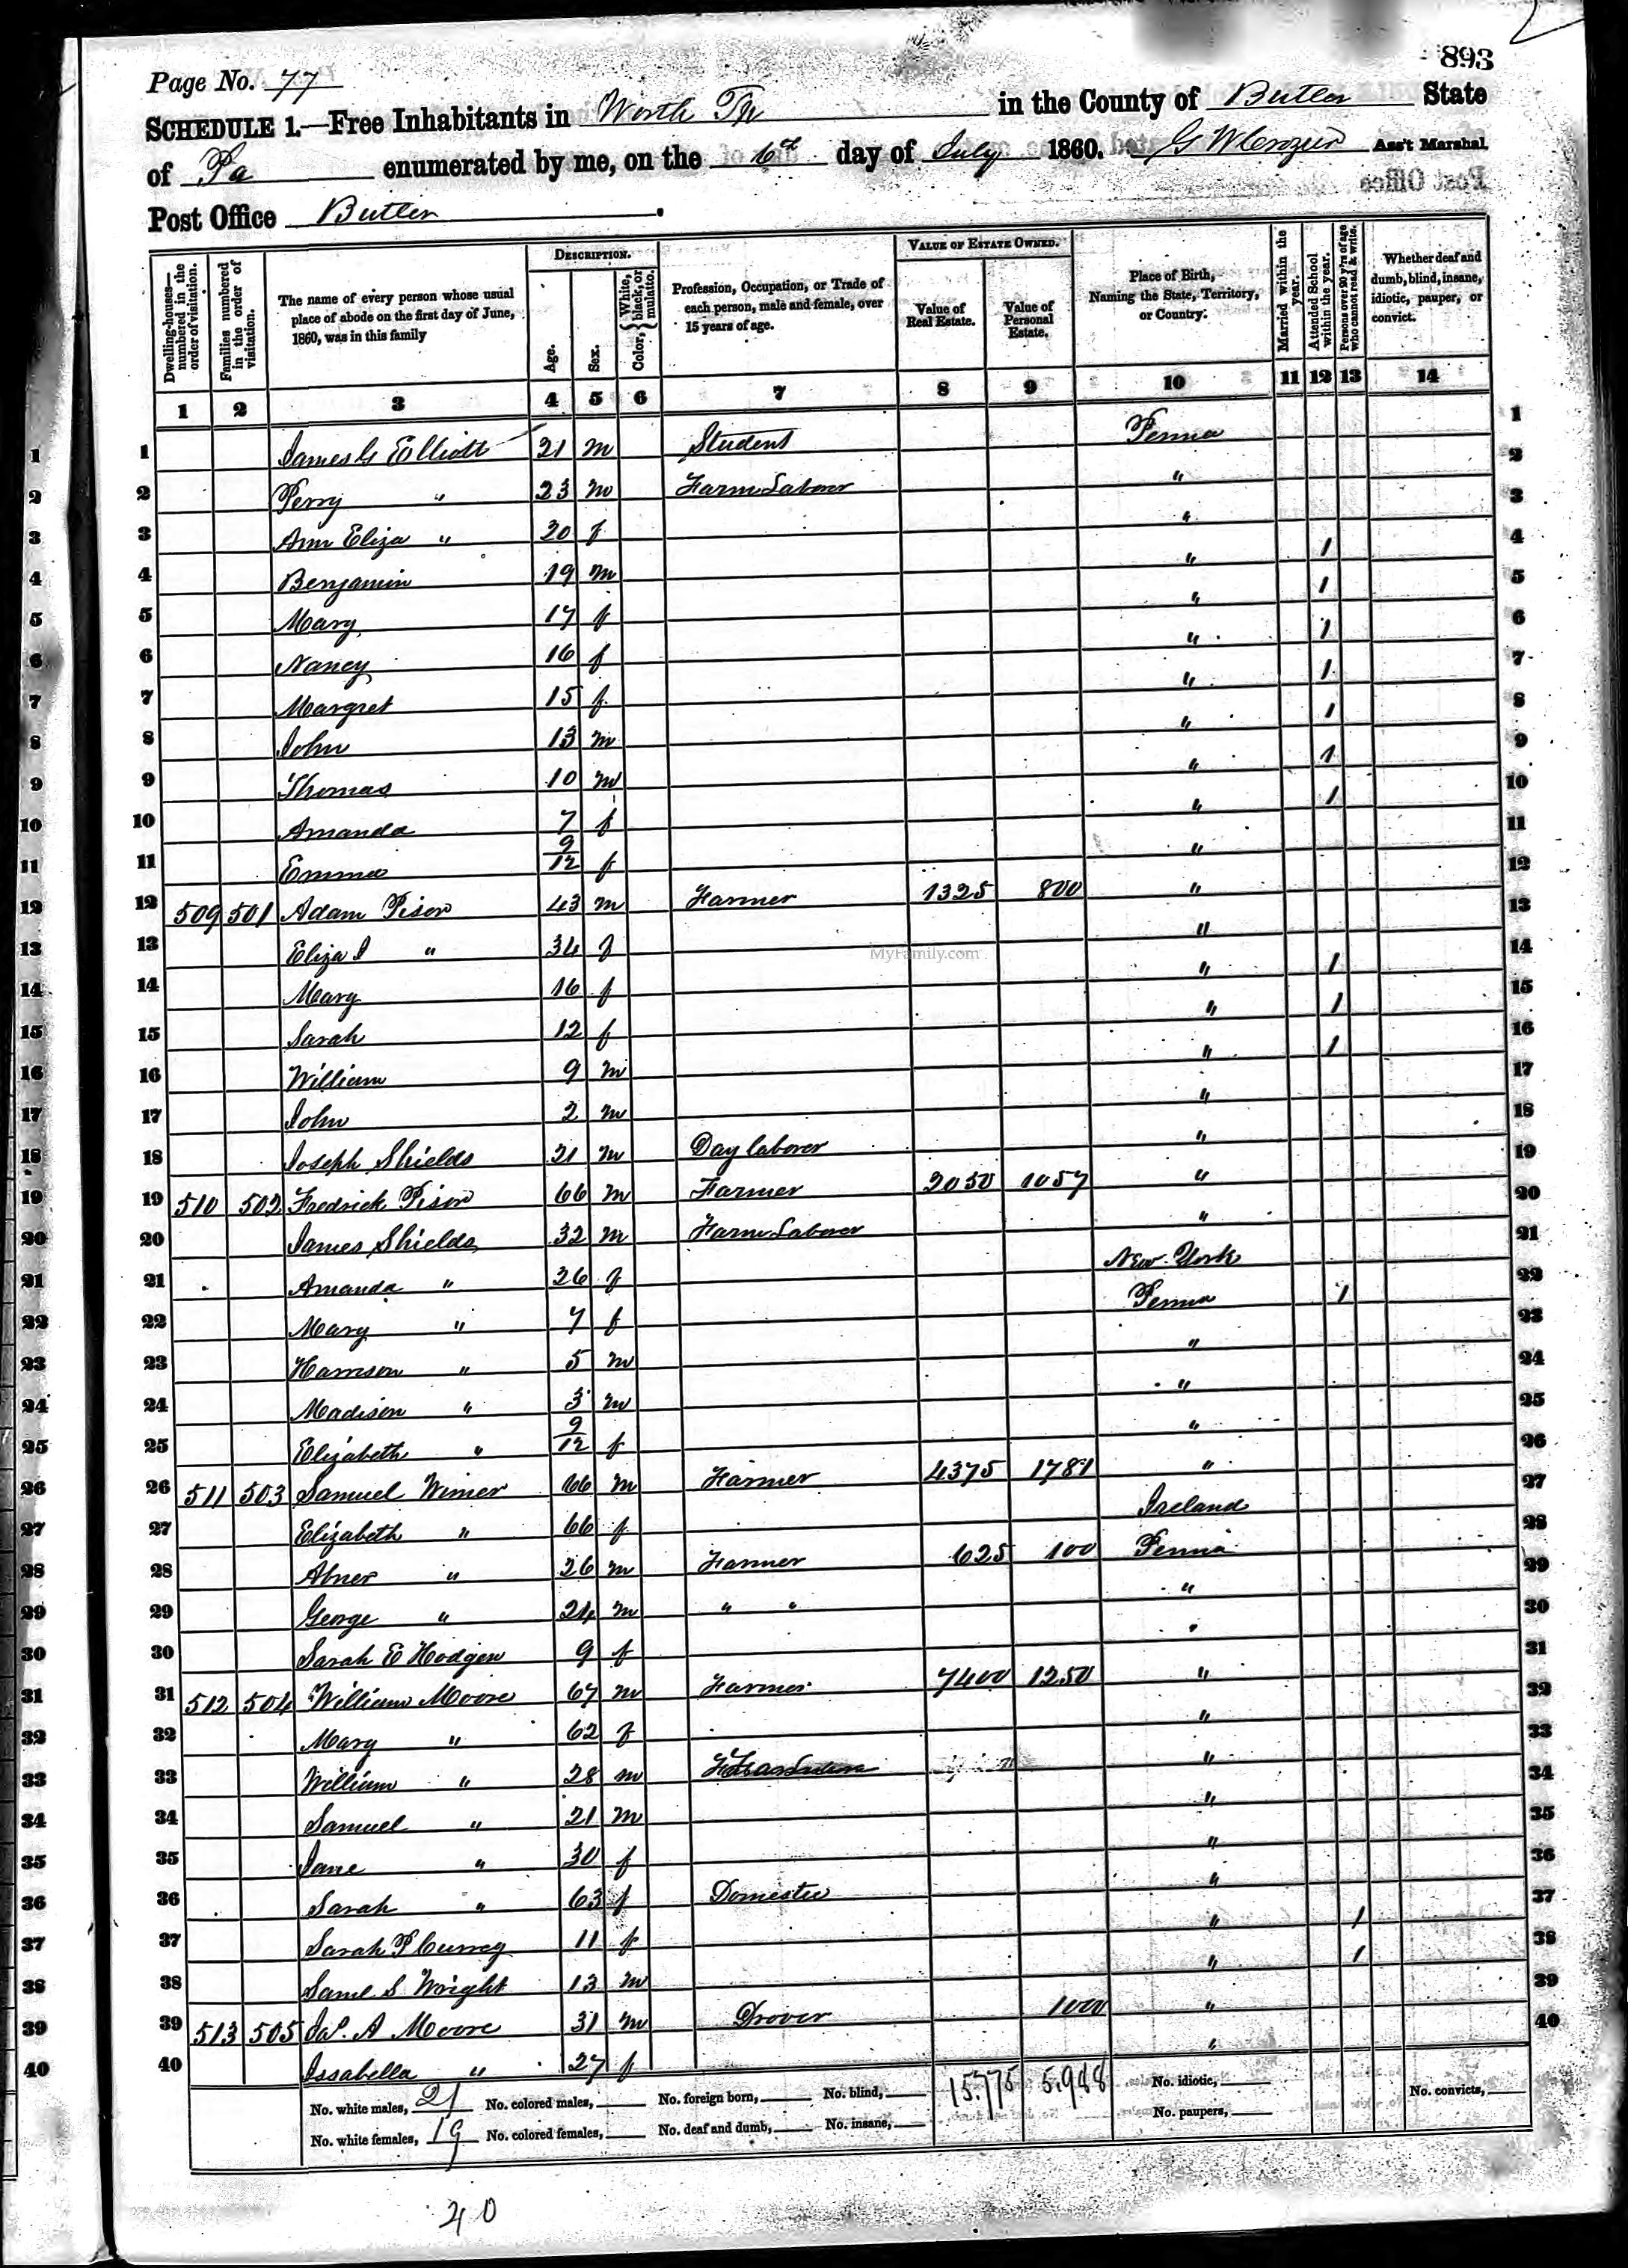 893
Page No. 77
SCHEDULE 1.—Free Inhabitants in Worth Tp in the County of Butler State
of Pa enumerated by me, on the 6th day of July 1860. Ass't Marshal
Post Office Butler.
Dwelling-houses—numbered in the order of visitation.
Families numbered in the order of visitation.
The name of every person whose usual place of abode on the first day of June, 1860, was in this family
DESCRIPTION.
Age.
Sex.
Color, { White, black, or mulatto.
Profession, Occupation, or Trade of each person, male and female, over 15 years of age.
VALUE OF ESTATE OWNED.
Value of Real Estate.
Value of Personal Estate.
Place of Birth, Naming the State, Territory, or Country.
Married within the year.
Attended School within the year.
Persons over 20 y'rs of age who cannot read & write.
Whether deaf and dumb, blind, insane, idiotic, pauper, or convict.
1 2 3 4 5 6 7 8 9 10 11 12 13 14
1 James G Elliott 21 m Student Penna 1
2 Perry " 23 m Farm Laborer " 2
3 Ann Eliza " 20 f " 3
4 Benjamin 19 m " 1 4
5 Mary 17 f " 1 5
6 Nancy 16 f " 1 6
7 Margret 15 f " 1 7
8 John 13 m " 1 8
9 Thomas 10 m " 1 9
10 Amanda 7 f " 1 10
11 Emma 9/12 f " 11
12 509 501 Adam Pisor 43 m Farmer 1325 800 " 12
13 Eliza J " 34 f " 13
14 Mary 16 f " 1 14
15 Sarah 12 f " 1 15
16 William 9 m " 1 16
17 John 2 m " 17
18 Joseph Shields 21 m Day laborer " 18
19 510 502 Fredrick Pisor 66 m Farmer 2050 1057 " 19
20 James Shields 32 m Farm Laborer " 20
21 Amanda " 26 f New York 21
22 Mary " 7 f Penna 1 22
23 Harrison " 5 m " 23
24 Madison " 3 m " 24
25 Elizabeth " 9/12 f " 25
26 511 503 Samuel Wimer 66 m Farmer 4375 1781 " 26
27 Elizabeth " 66 f Ireland 27
28 Abner " 26 m Farmer 625 100 Penna 28
29 George " 24 m " " " 29
30 Sarah E Hodgen 9 f " 30
31 512 504 William Moore 67 m Farmer 7400 1250 " 31
32 Mary " 62 f " 32
33 William " 28 m " 33
34 Samuel " 21 m " 34
35 Jane " 30 f " 35
36 Sarah " 63 f Domestic " 36
37 Sarah P Curry 11 f " 1 37
38 Saml S Wright 13 m " 1 38
39 513 505 Jas. A Moore 31 m Drover 1000 " 39
40 Issabella " 27 f " 40
No. white males, 21 No. colored males, No. foreign born, No. blind, 15.775 5.988 No. idiotic, No. convicts,
No. white females, 19 No. colored females, No. deaf and dumb, No. insane, No. paupers,
40
MyFamily.com